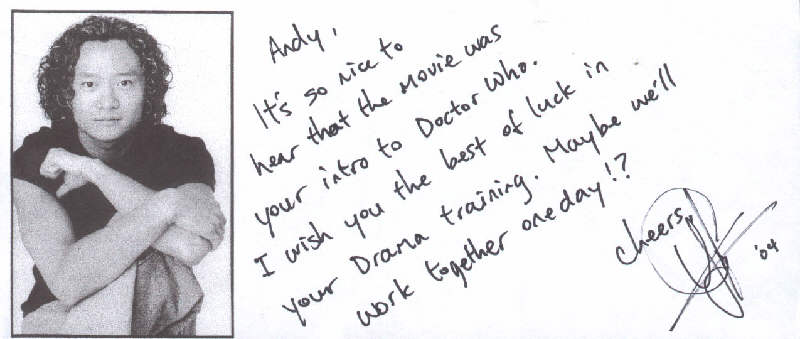 Andy,
It's so nice to
hear that the movie was
your intro to Doctor Who.
I wish you the best of luck in
your Drama training. Maybe we'll
work together one day!?
Cheers,
'04